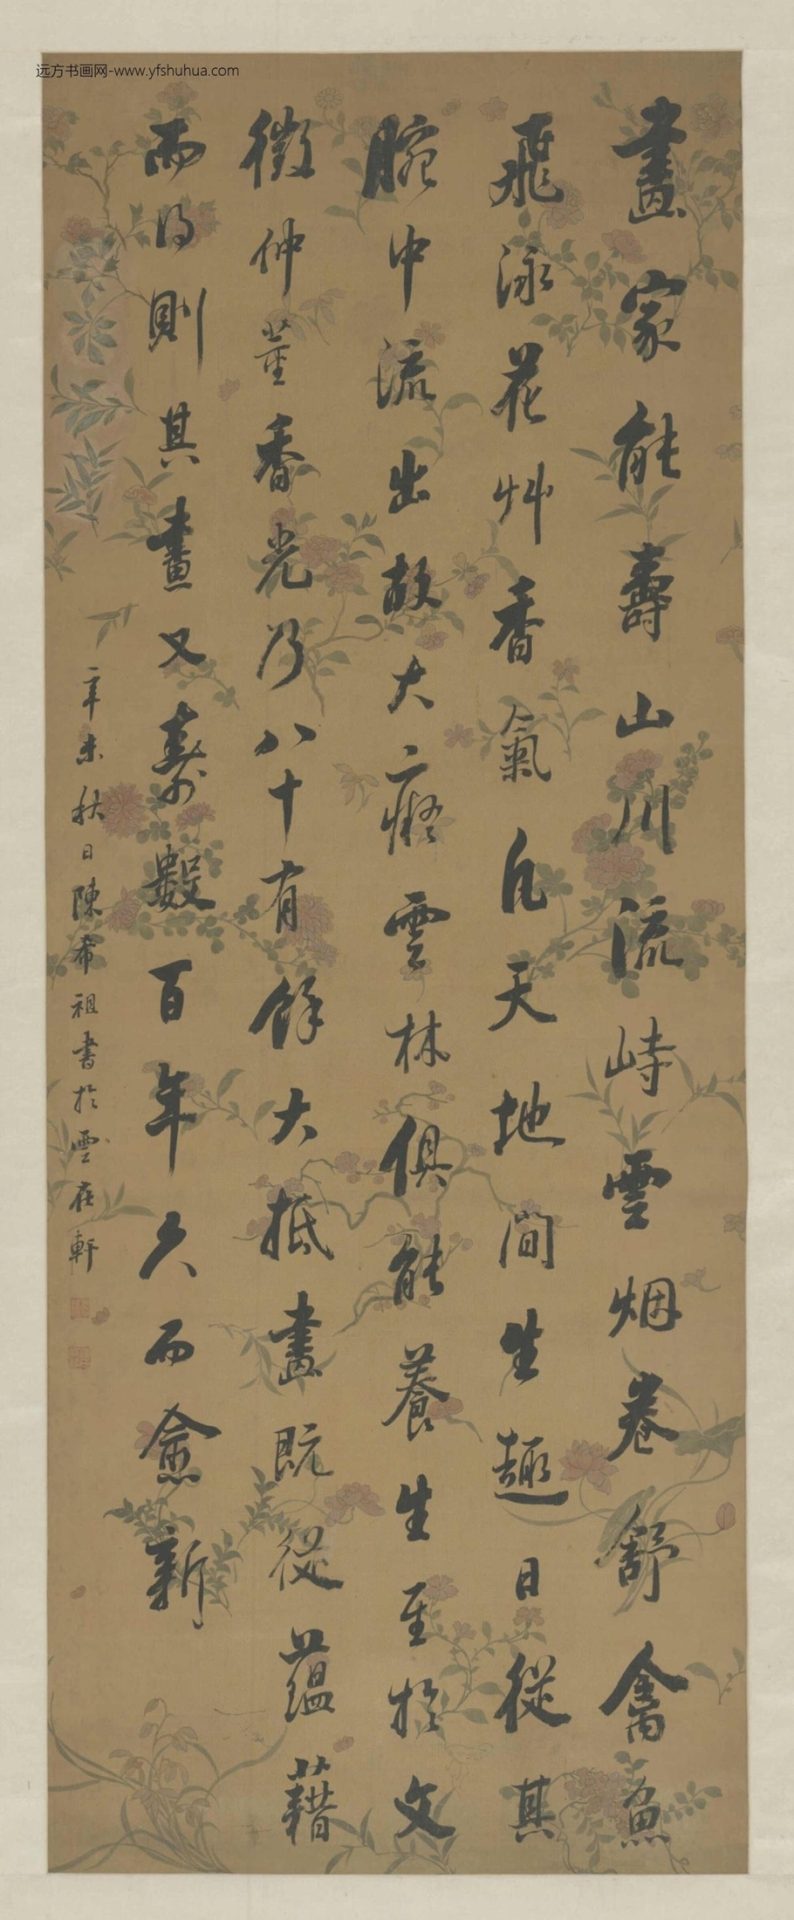 远方书画网-www.yfshuhua.com
畫家能壽山川流峙雲烟卷舒禽魚
飛泳花艸香氣凡天地間生趣日從其
腕中流出故大癡雲林俱能養生至於文
徵仲董香光乃八十有餘大抵畫既從蘊藉
而得則其畫又壽數百年久而愈新
辛未秋日陳希祖書於雲在軒